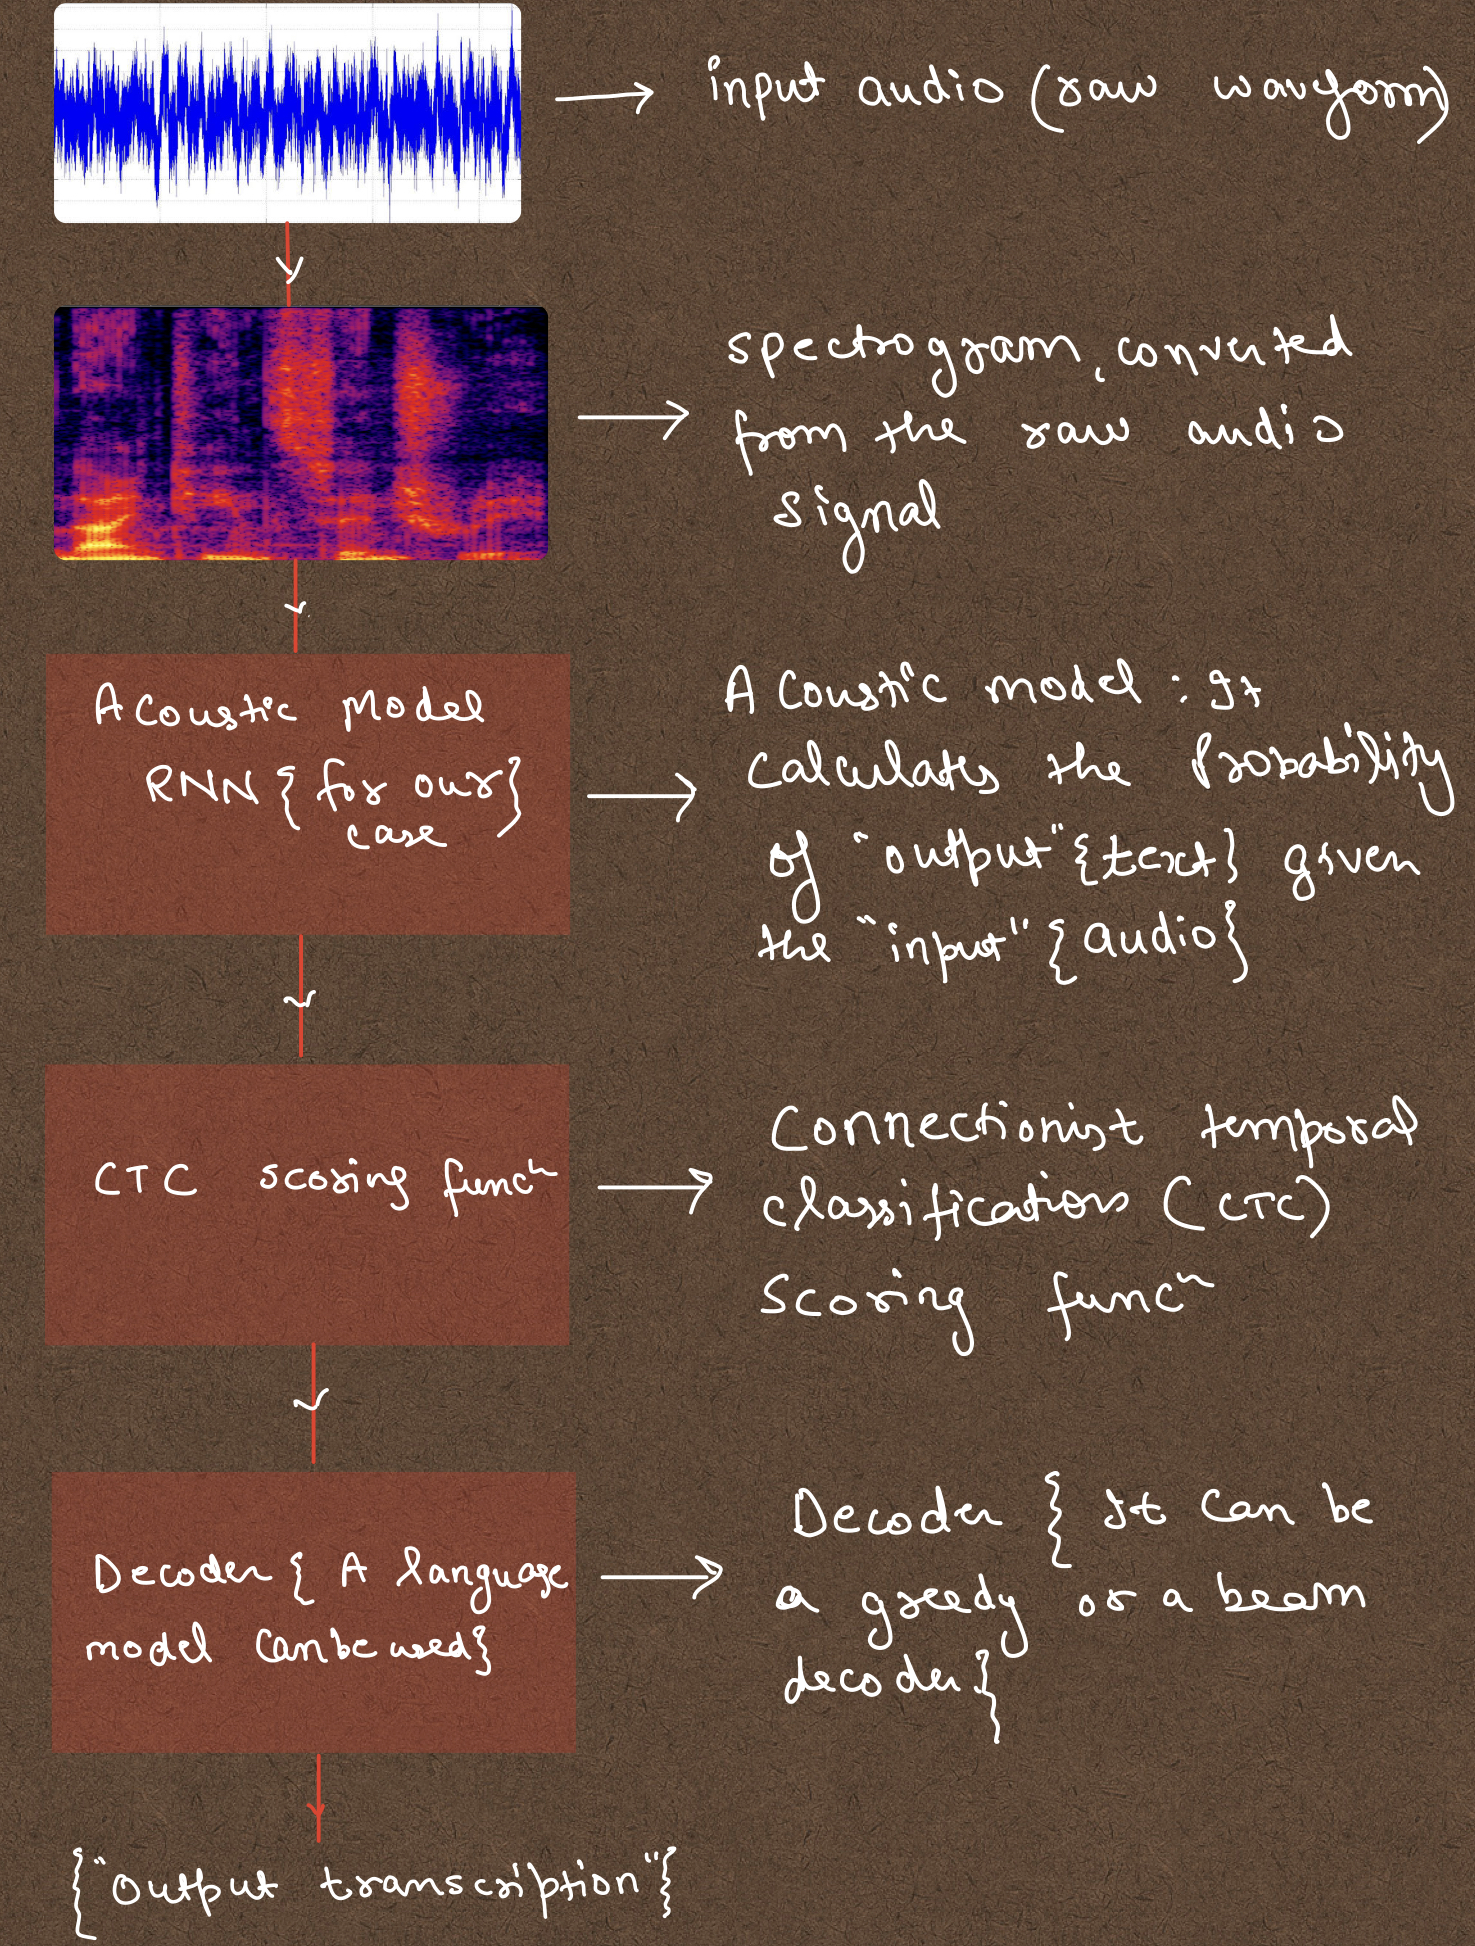 input audio (raw waveform)
spectrogram, converted
from the raw audio
signal
Acoustic Model
RNN { for our }
case
Acoustic model : It
calculates the Probability
of "output" {text} given
the "input" {audio}
CTC scoring funcⁿ
Connectionist temporal
classification (CTC)
Scoring funcⁿ
Decoder { A language
model can be used}
Decoder { It can be
a greedy or a beam
decoder }
{"Output transcription"}